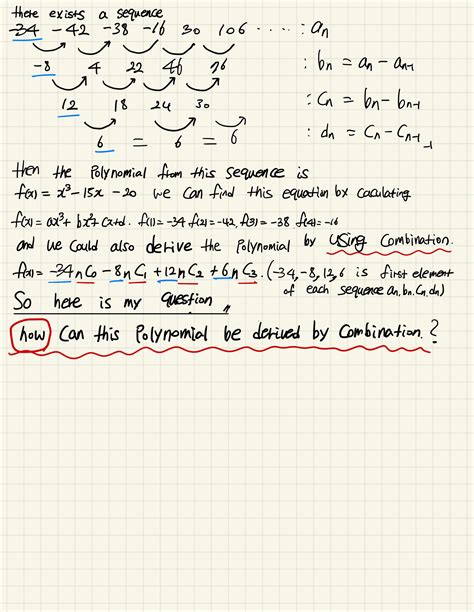 there exists a sequence
-34 -42 -38 -16 30 106 ..... : an
-8 4 22 46 76 : bn = an - an-1
12 18 24 30 : Cn = bn - bn-1
6 = 6 = 6 : dn = Cn - Cn-1 -1
then the Polynomial from this sequence is
f(x) = x³-15x-20 we can find this equation by caculating
f(x) = ax³+bx²+cx+d. f(1)=-34 f(2)=-42, f(3)=-38 f(4)=-16
and we could also derive the Polynomial by using Combination.
f(x)= -34nC0 -8nC1 +12nC2 +6nC3. (-34,-8,12,6 is first element
of each sequence an,bn,Cn,dn)
So here is my question
how Can this Polynomial be derived by Combination.?